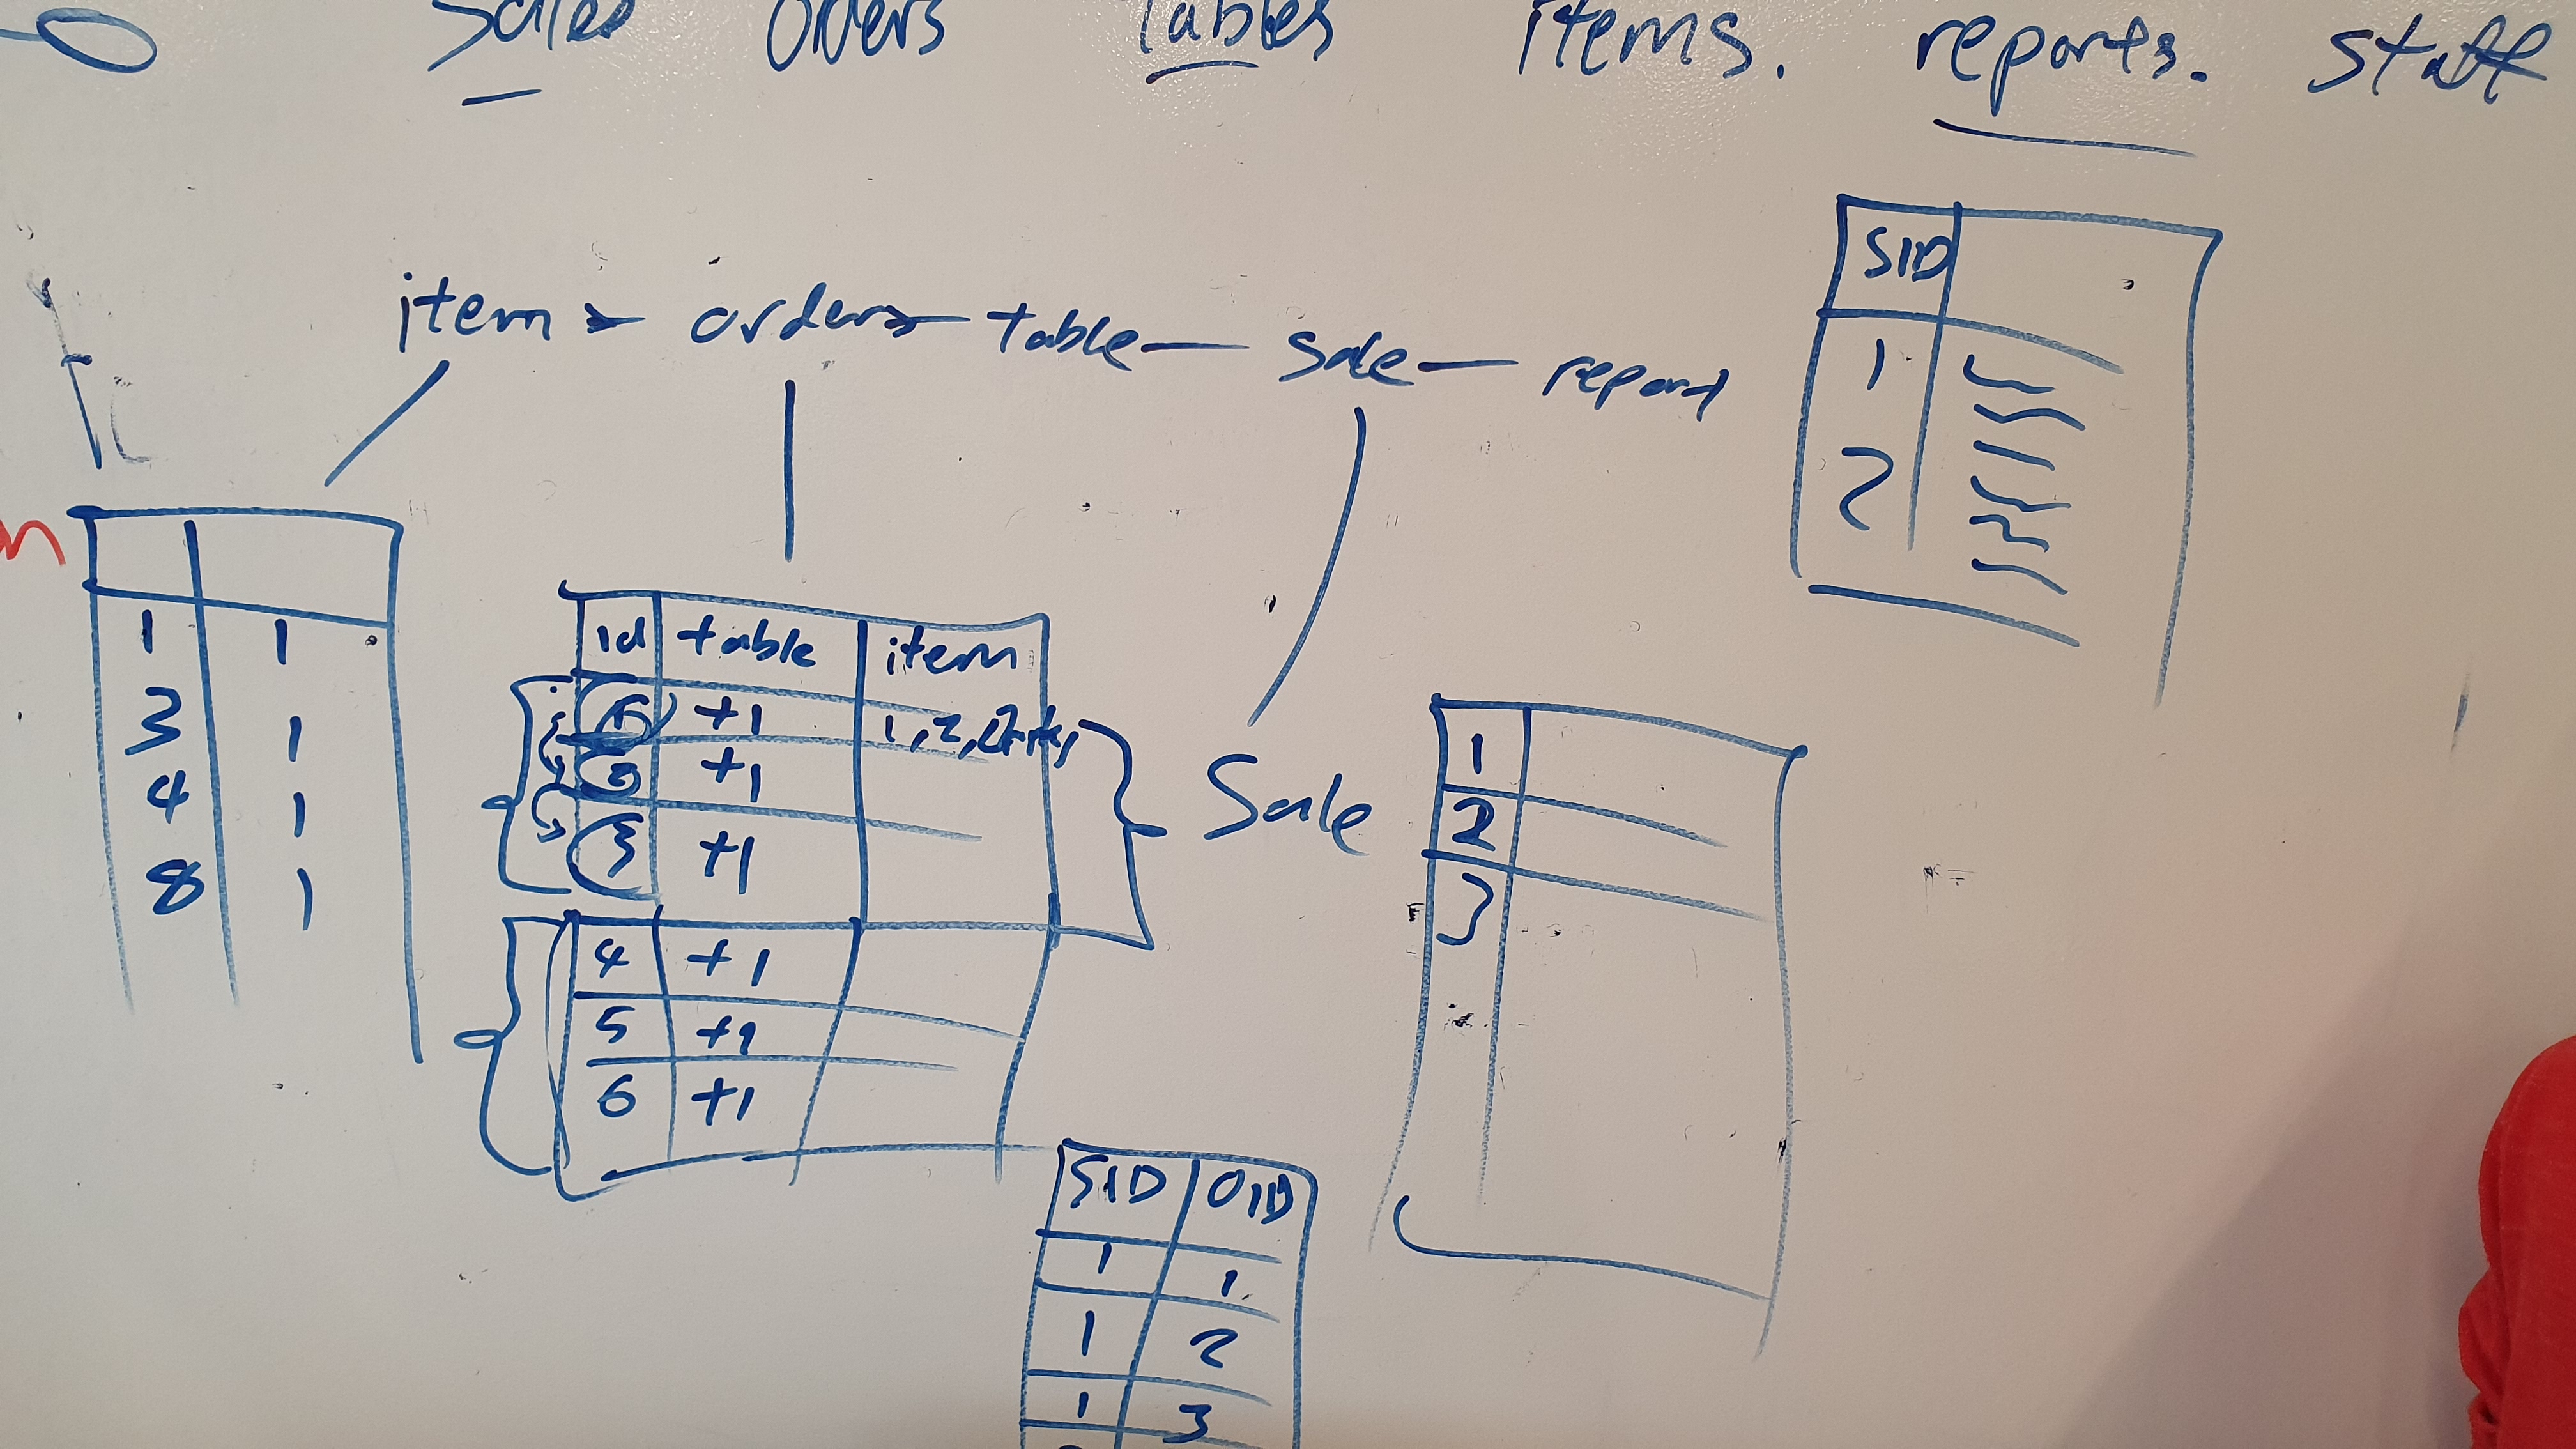 Sales Orders Tables items. reports. staff
item orders table sale report
SID
1
2
1 1
3 1
4 1
8 1
id table item
t1 1, 2,
t1
3 t1
4 t1
5
6 t1
Sale
1
2
3
SID OID
1 1
1 2
1 3